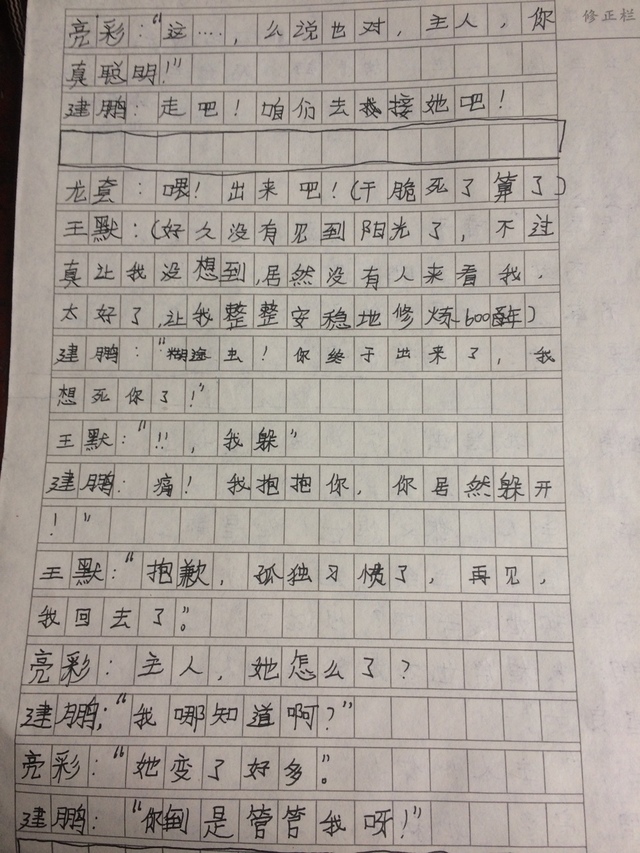 修正栏
亮彩:“这····,么说也对,主人,你
真聪明!”
建鹏:走吧!咱们去接她吧!
龙套:喂!出来吧!(干脆死了算了)
王默:(好久没有见到阳光了,不过
真让我没想到,居然没有人来看我.
太好了,让我整整安稳地修炼600年)
建鹏:“糊涂虫!你终于出来了,我
想死你了!”
王默:“!!,我躲”
建鹏:痛!我抱抱你,你居然躲开
!”
王默:“抱歉,孤独习惯了,再见,
我回去了”。
亮彩:主人,她怎么了?
建鹏:“我哪知道啊?”
亮彩:“她变了好多”。
建鹏:“你倒是管管我呀!”